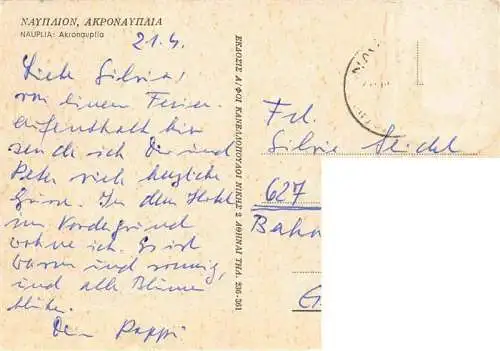 ΝΑΥΠΛΙΟΝ, ΑΚΡΟΝΑΥΠΛΙΑ
NAUPLIA: Akronavplia
21.4.
Liebe Silvia,
von einem Ferien-
aufenthalt hier
sende ich Dir und
Peter viele herzliche
Grüsse. In dem Hotel
im Vordergrund
wohne ich. Es ist
warm und sonnig,
und alle Blumen
blühen.
Dein Pappi
ΕΚΔΟΣΙΣ ΑΦΟΙ ΚΑΝΕΛΛΟΠΟΥΛΟΙ ΝΙΚΗΣ 2 ΑΘΗΝΑΙ ΤΗΛ. 236-361
Frl.
Silvia
627
Bahn